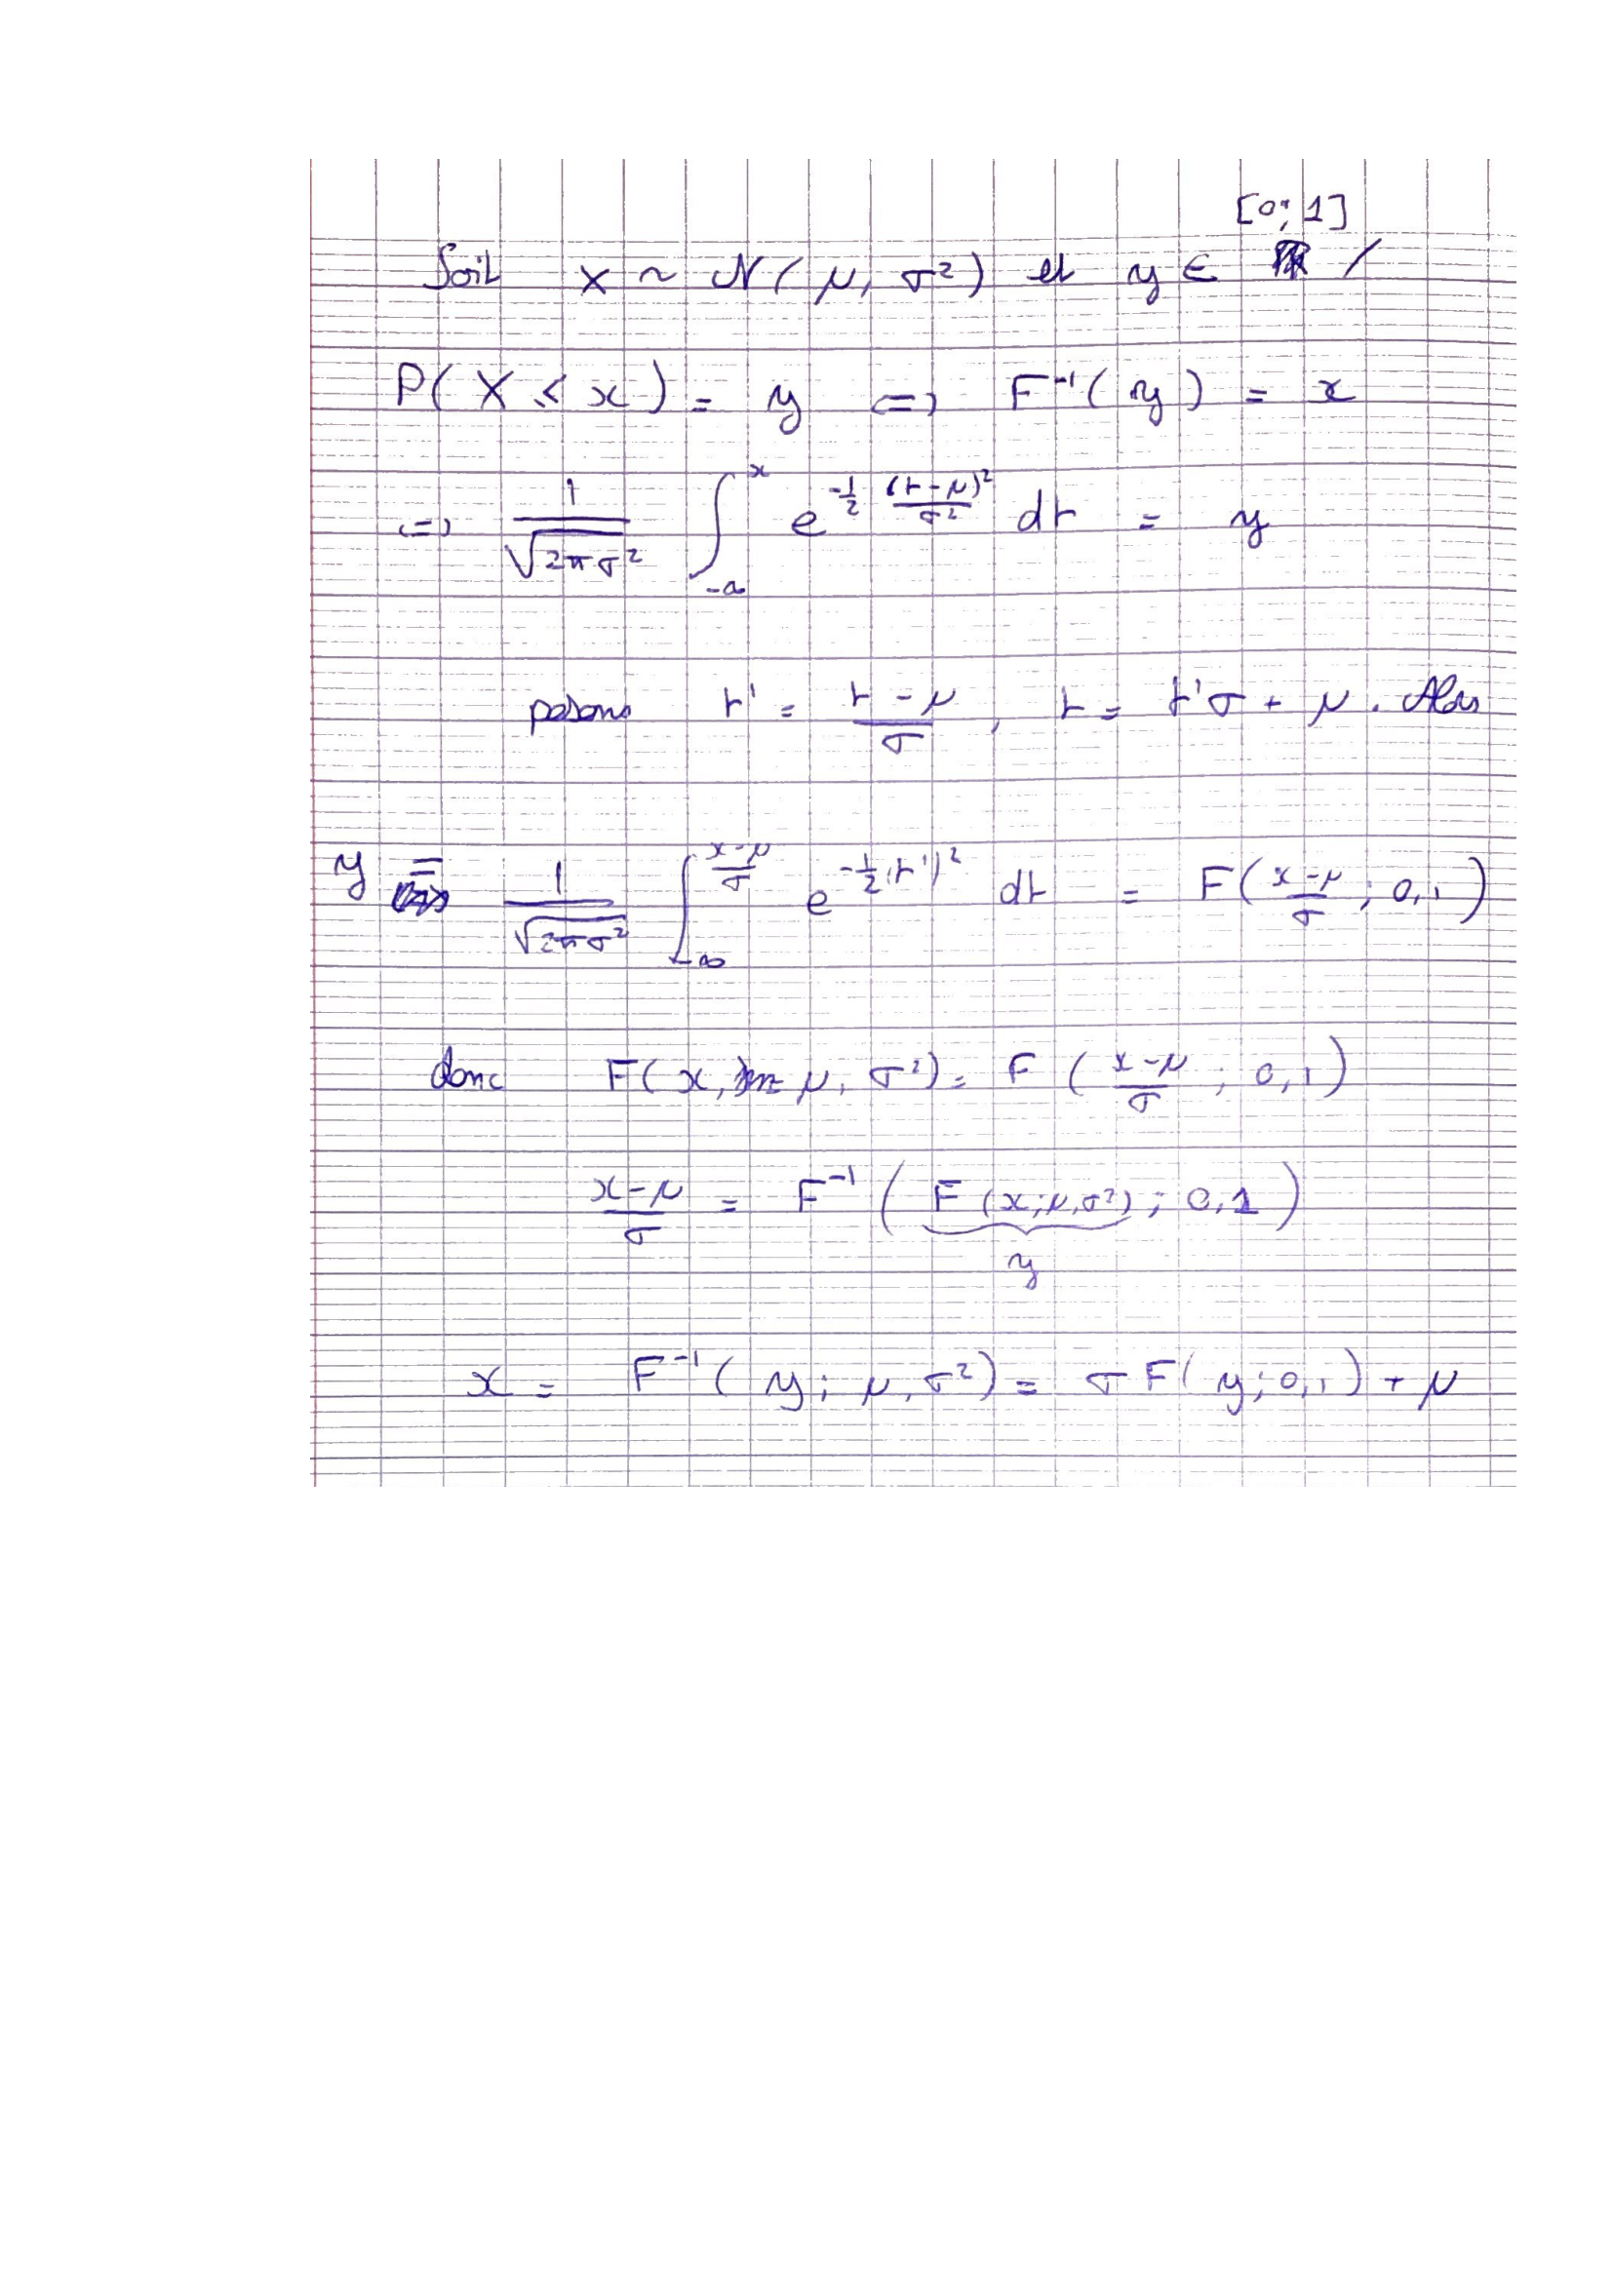 [0; 1]
Soit X ~ N(μ, σ²) et y ∈ /
P(X ≤ x) = y <=> F⁻¹(y) = x
<=> 1/√(2πσ²) ∫_{-∞}^{x} e^{-1/2 (t-μ)²/σ²} dt = y
posons t' = (t - μ)/σ, t = t'σ + μ. Alors
y = 1/√(2πσ²) ∫_{-∞}^{(x-μ)/σ} e^{-1/2 (t')²} dt = F((x-μ)/σ ; 0, 1)
donc F(x, μ, σ²) = F((x-μ)/σ ; 0, 1)
(x-μ)/σ = F⁻¹(F(x; μ, σ²) ; 0, 1)
y
x = F⁻¹(y; μ, σ²) = σ F(y; 0, 1) + μ